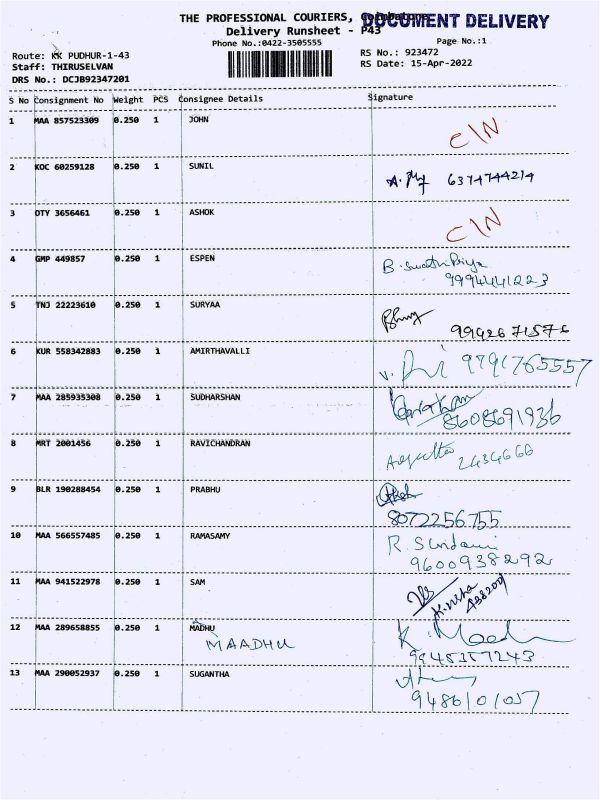 THE PROFESSIONAL COURIERS, Coimbatore
DOCUMENT DELIVERY
Delivery Runsheet - P43
Phone No.:0422-3505555
Page No.:1
Route: KK PUDHUR-1-43
RS No.: 923472
Staff: THIRUSELVAN
RS Date: 15-Apr-2022
DRS No.: DCJB92347201
S No Consignment No Weight PCS Consignee Details Signature
1 MAA 857523309 0.250 1 JOHN C/N
2 KOC 60259128 0.250 1 SUNIL 6374744214
3 OTY 3656461 0.250 1 ASHOK C/N
4 GMP 449857 0.250 1 ESPEN B. Swathi Priya
9994441223
5 TNJ 22223610 0.250 1 SURYAA
9942671576
6 KUR 558342883 0.250 1 AMIRTHAVALLI 9791765557
7 MAA 285935308 0.250 1 SUDHARSHAN
8608691936
8 MRT 2001456 0.250 1 RAVICHANDRAN 2434666
9 BLR 190288454 0.250 1 PRABHU
8072256755
10 MAA 566557485 0.250 1 RAMASAMY
9600938292
11 MAA 941522978 0.250 1 SAM
K. Nisha
12 MAA 289658855 0.250 1 MADHU
MAADHU
13 MAA 290052937 0.250 1 SUGANTHA
9486101057